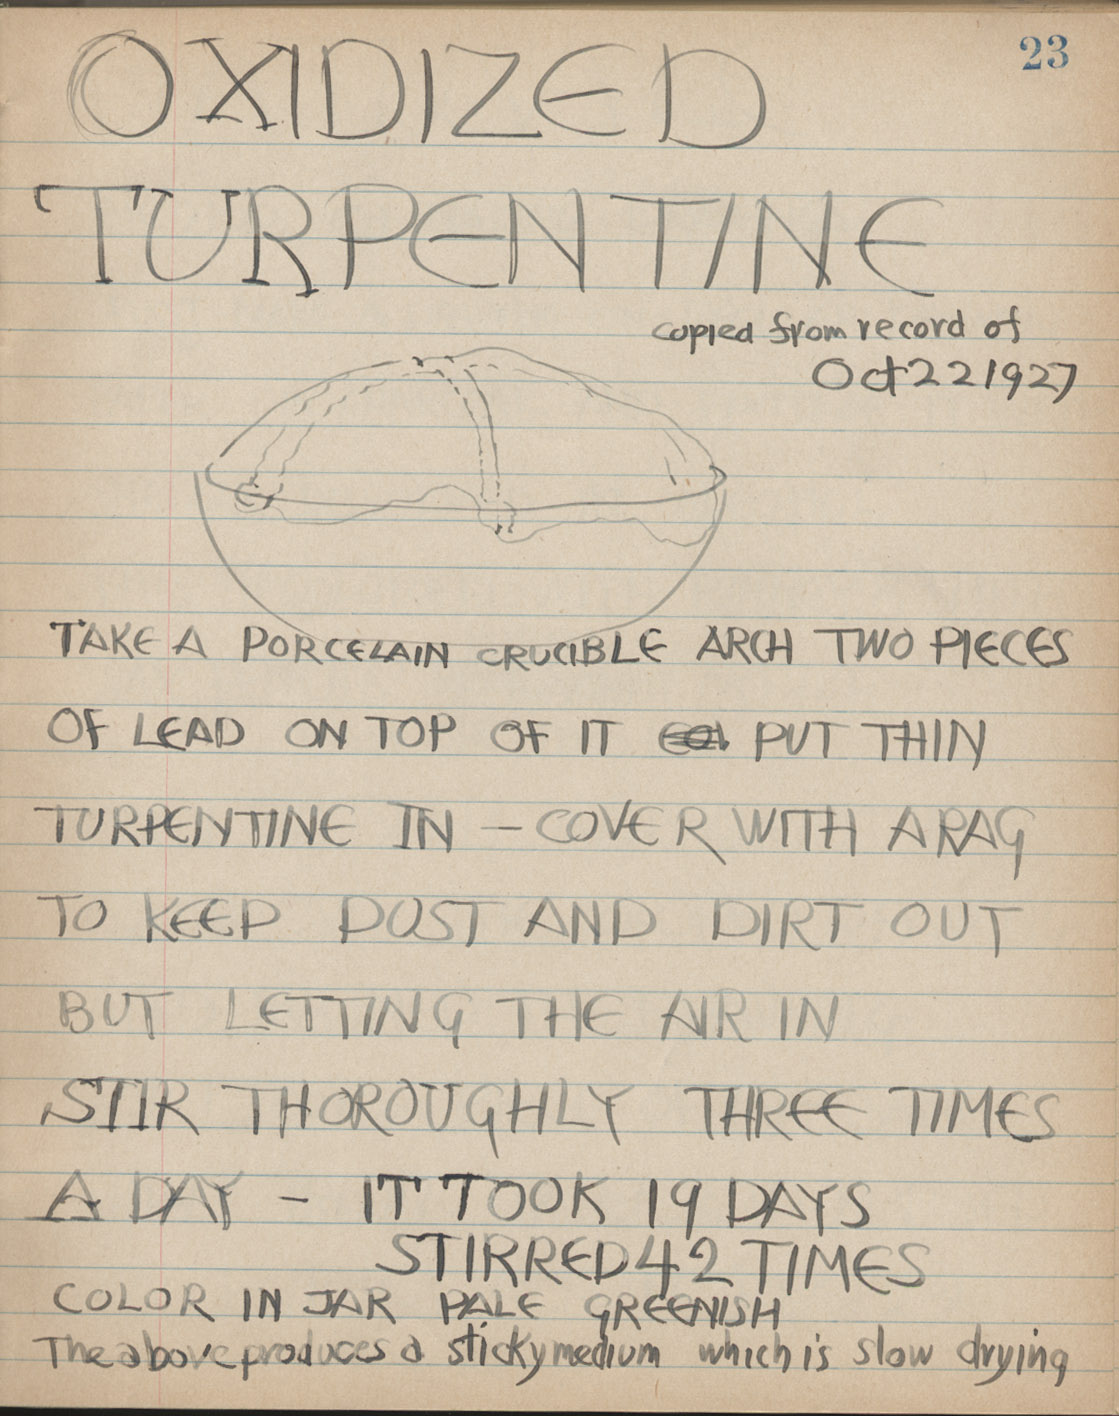 23
OXIDIZED
TURPENTINE
copied from record of
Oct 22 1927
TAKE A PORCELAIN CRUCIBLE ARCH TWO PIECES
OF LEAD ON TOP OF IT PUT THIN
TURPENTINE IN – COVER WITH A RAG
TO KEEP DUST AND DIRT OUT
BUT LETTING THE AIR IN
STIR THOROUGHLY THREE TIMES
A DAY – IT TOOK 19 DAYS
STIRRED 42 TIMES
COLOR IN JAR PALE GREENISH
The above produces a sticky medium which is slow drying